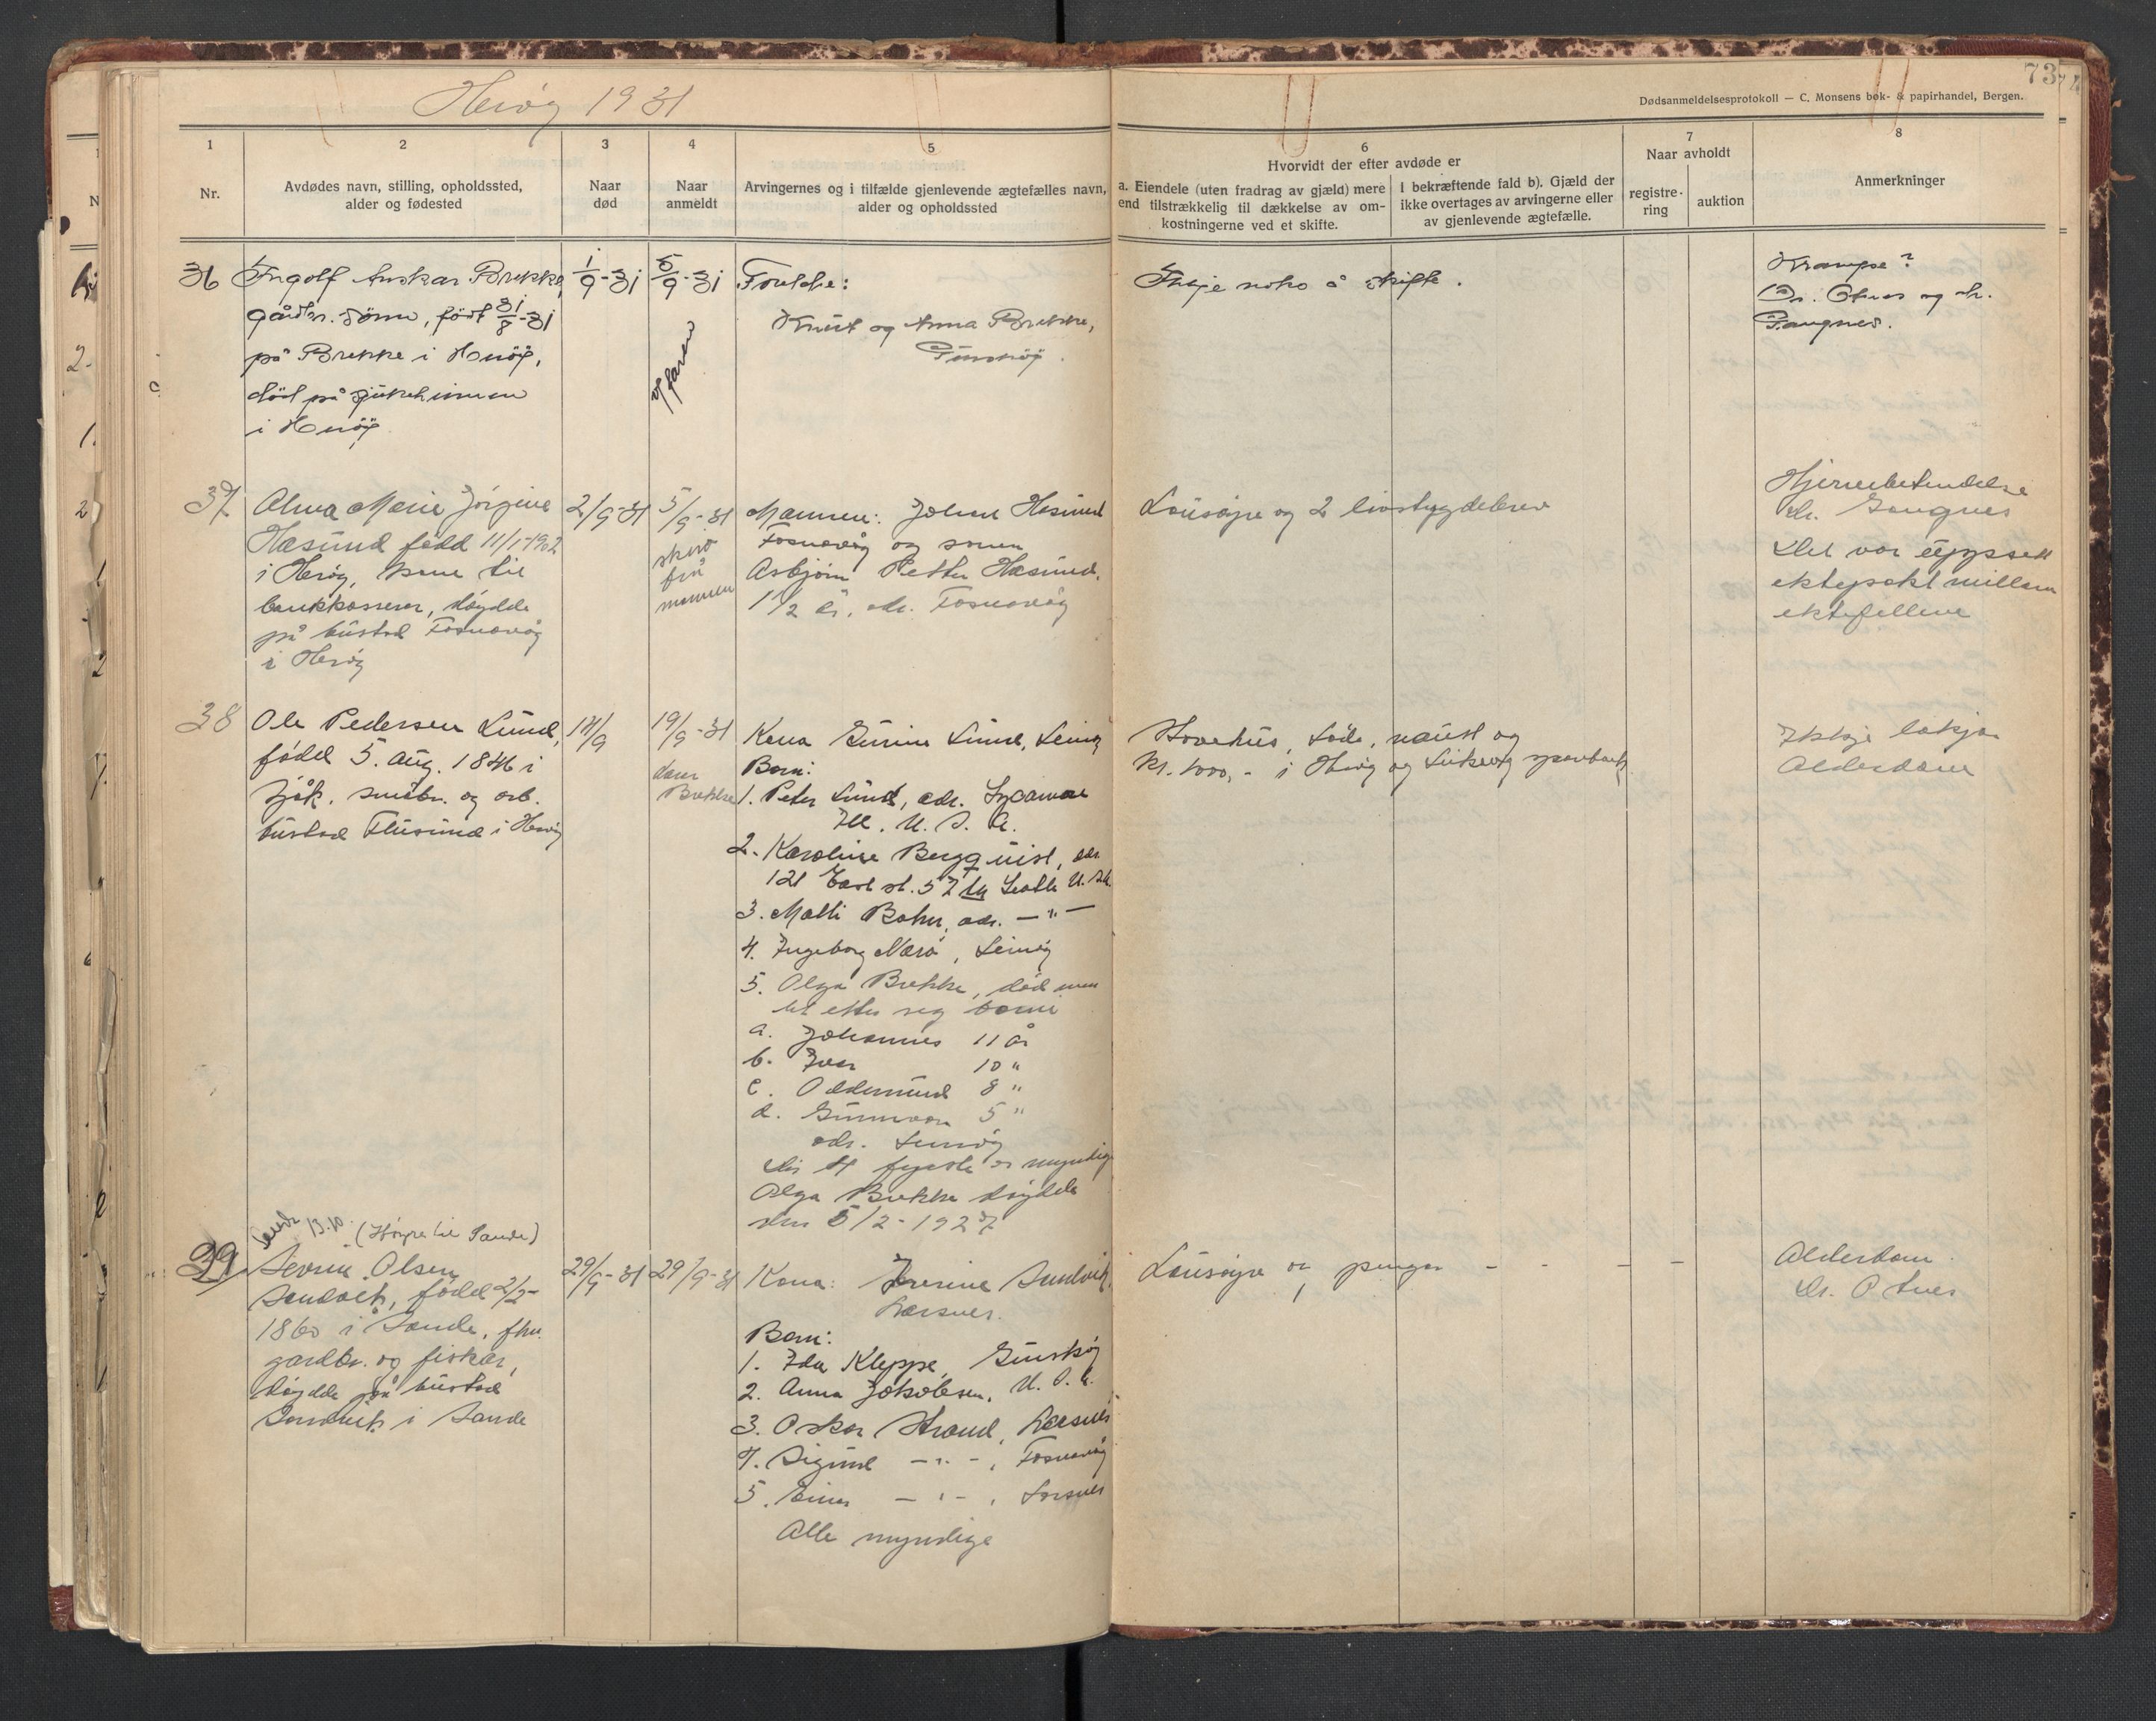 Herøy 1931
73
Dødsanmeldelsesprotokoll — C. Monsens bok- & papirhandel, Bergen.
1
Nr.
2
Avdødes navn, stilling, opholdssted,
alder og fødested
3
Naar
død
4
Naar
anmeldt
5
Arvingernes og i tilfælde gjenlevende ægtefælles navn,
alder og opholdssted
6
Hvorvidt der efter avdøde er
a. Eiendele (uten fradrag av gjæld) mere
end tilstrækkelig til dækkelse av om-
kostningerne ved et skifte.
I bekræftende fald b). Gjæld der
ikke overtages av arvingerne eller
av gjenlevende ægtefælle.
7
Naar avholdt
registre-
ring
auktion
8
Anmerkninger
36
Ingolf Anskar Brekke,
gårdbr. sönn, födt 31/8-31
på Brekke i Heröy,
död på sjukeheimen
i Heröy.
1/9-31
5/9-31
av faren
Foreldre:
Knut og Anna Brekke,
Gurskøy.
Ikkje noko å skifte.
Krampe?
Dr. Otnes og dr.
Gangnes.
37
Alma Marie Jørgine
Hasund fødd 11/1-1902
i Herøy, kone til
bankkasserer, døydde
på bustad Fosnavåg
i Herøy
2/9-31
5/9-31
skriv
frå
mannen
Mannen: Johan Hasund
Fosnavåg og sonen
Asbjørn Petter Hasund,
1 1/2 år, adr. Fosnavåg
Lausøyre og 2 livstrygdebrev
Hjernebetendelse
dr. Gangnes
Det var uppsett
ektepakt millom
ektefellene
38
Ole Pedersen Lund,
fødd 5. aug. 1846 i
småbr. og arb.
bustad Flusund i Herøy
17/9
19/9-31
Brekke
Kona Gurine Lund, Leinøy
Born:
1. Peter Lund, adr. Sycamore
Ill. U. S. A.
2. Karoline Bergquist, adr.
121 East st. 57 Seattle U.S.A.
3. Malli adr. — " —
4. Ingeborg Nærø, Leinøy
5. Olga Brekke, død men
let etter seg borni
a. Johannes 11 år
b. Ivar 10 "
c. Oddmund 8 "
d. Gunnvor 5 "
adr. Leinøy
Dei 4 fyrste er myndige
Olga Brekke døydde
den 5/2-1927
Stovehus, løde, naust og
kr. 1000,- i Herøy og Sparebank
Ikkje lækjar
Alderdom
Sendt 13.10. (Høyre til Sande)
39
Sevrin Olsen
Sandvik, fødd 2/2-
1860 i Sande, fhv.
gardbr. og fiskar,
døydde på bustad
Sandvik i Sande
29/9-31
29/9-31
Kona: Severine Sandvik,
Larsnes.
Born:
1. Ida Kleppe, Gurskøy
2. Anna Jakobsen, U. S. A.
3. Oskar Strand, Larsnes
4. Sigurd — " —, Fosnavåg
5. Einar — " —, Larsnes
Alle myndige
Lausøyre og pengar - - - -
Alderdom.
Dr. Otnes